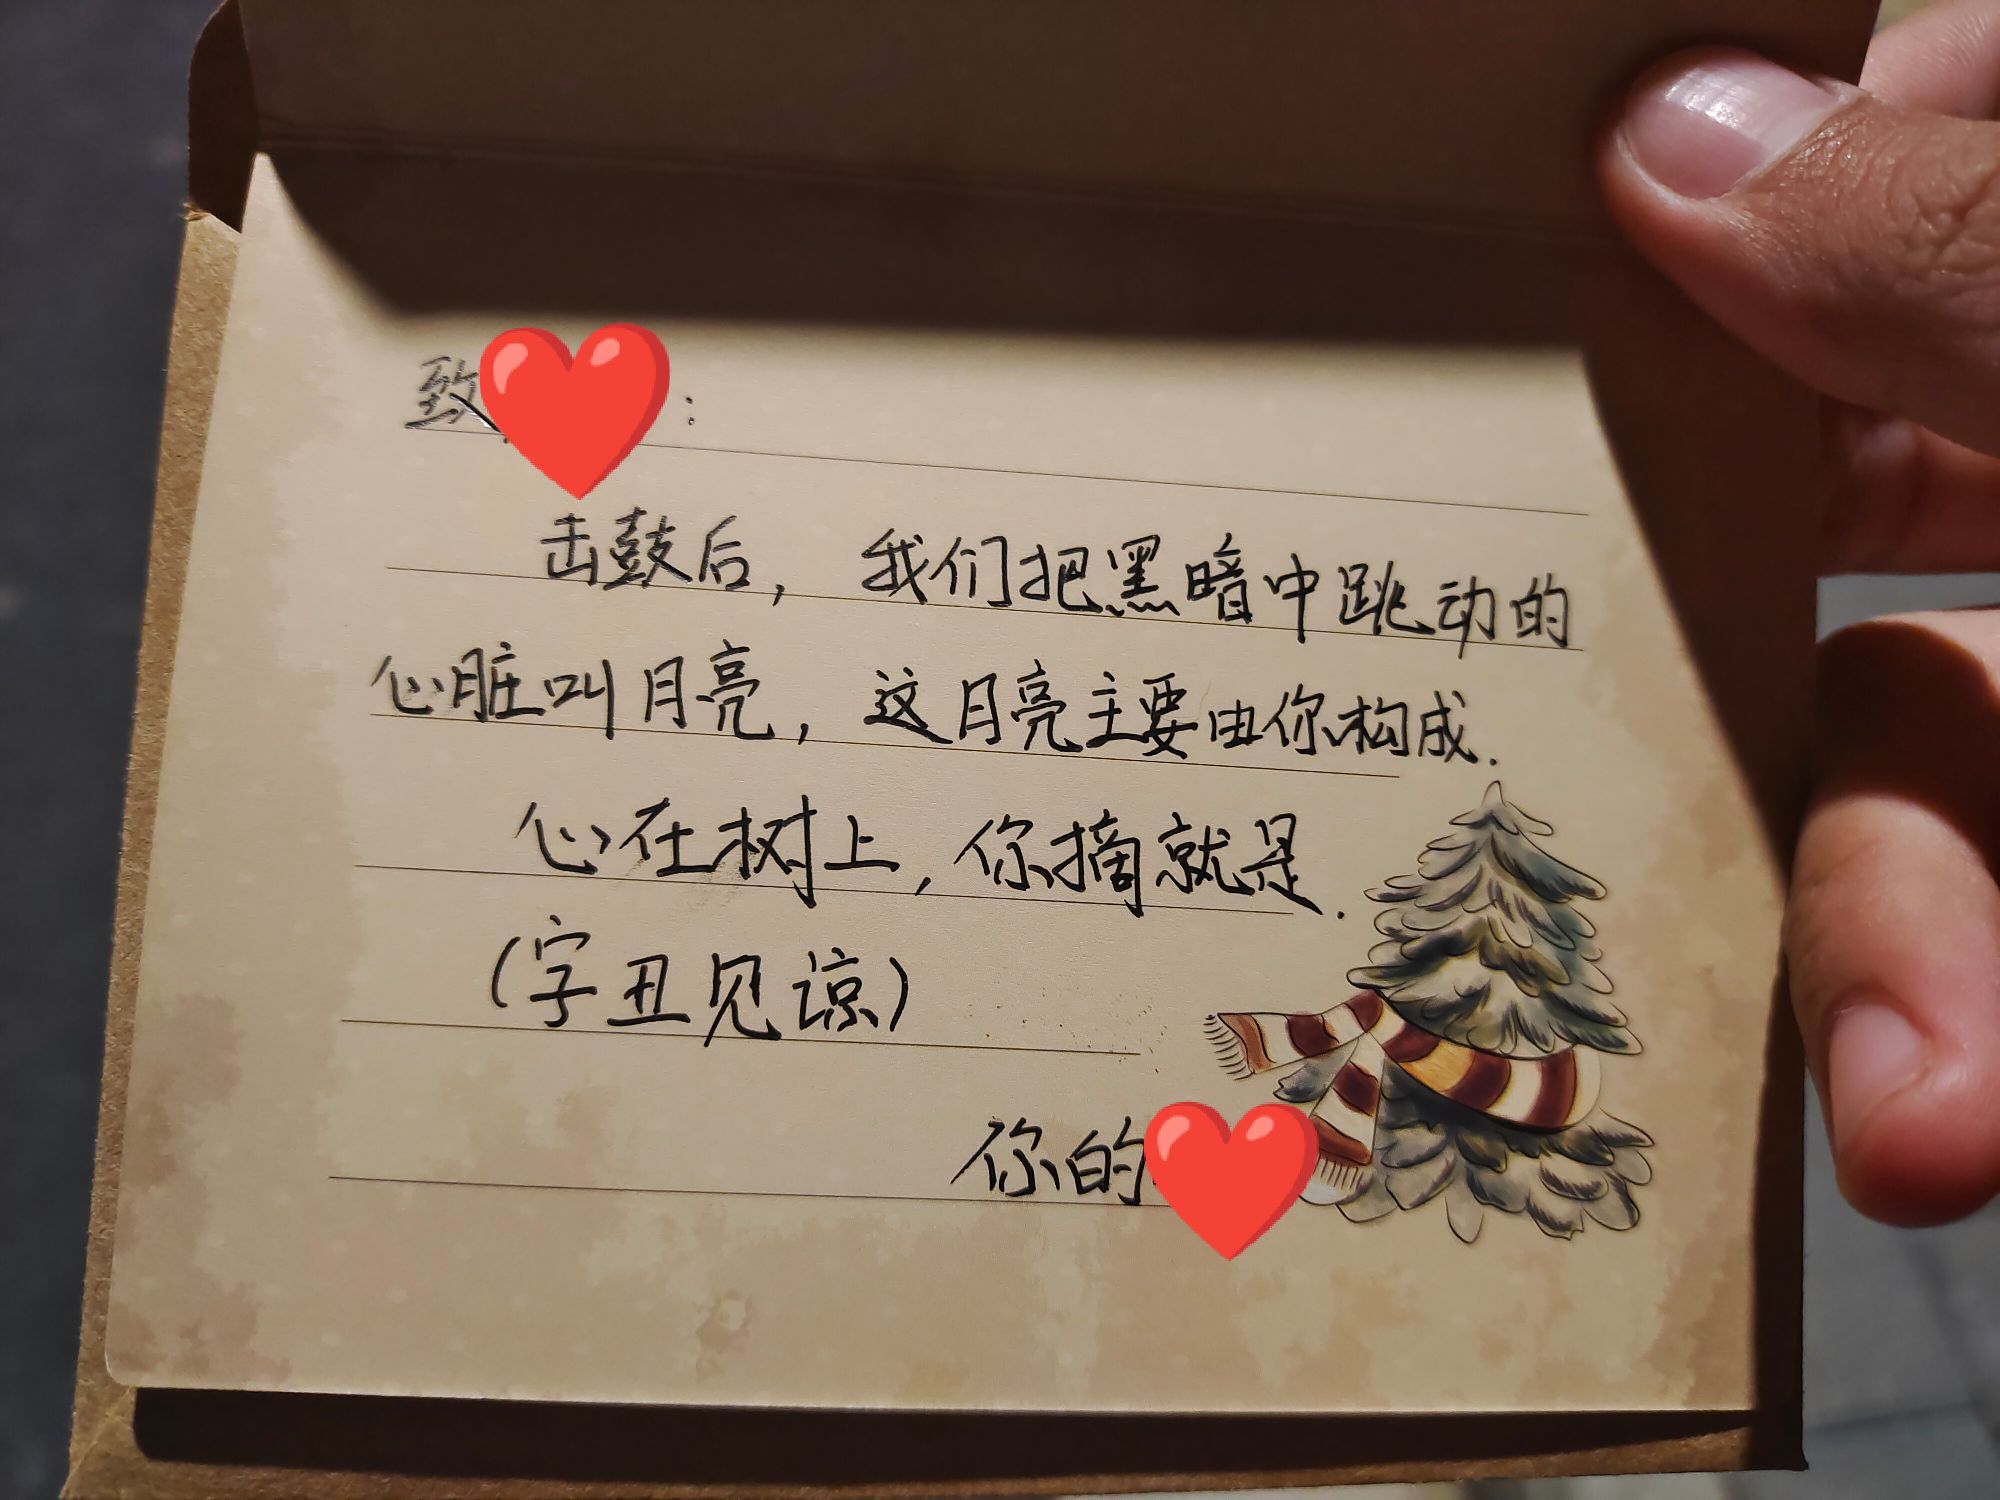 致 :
击鼓后，我们把黑暗中跳动的
心脏叫月亮，这月亮主要由你构成.
心在树上，你摘就是.
(字丑见谅)
你的